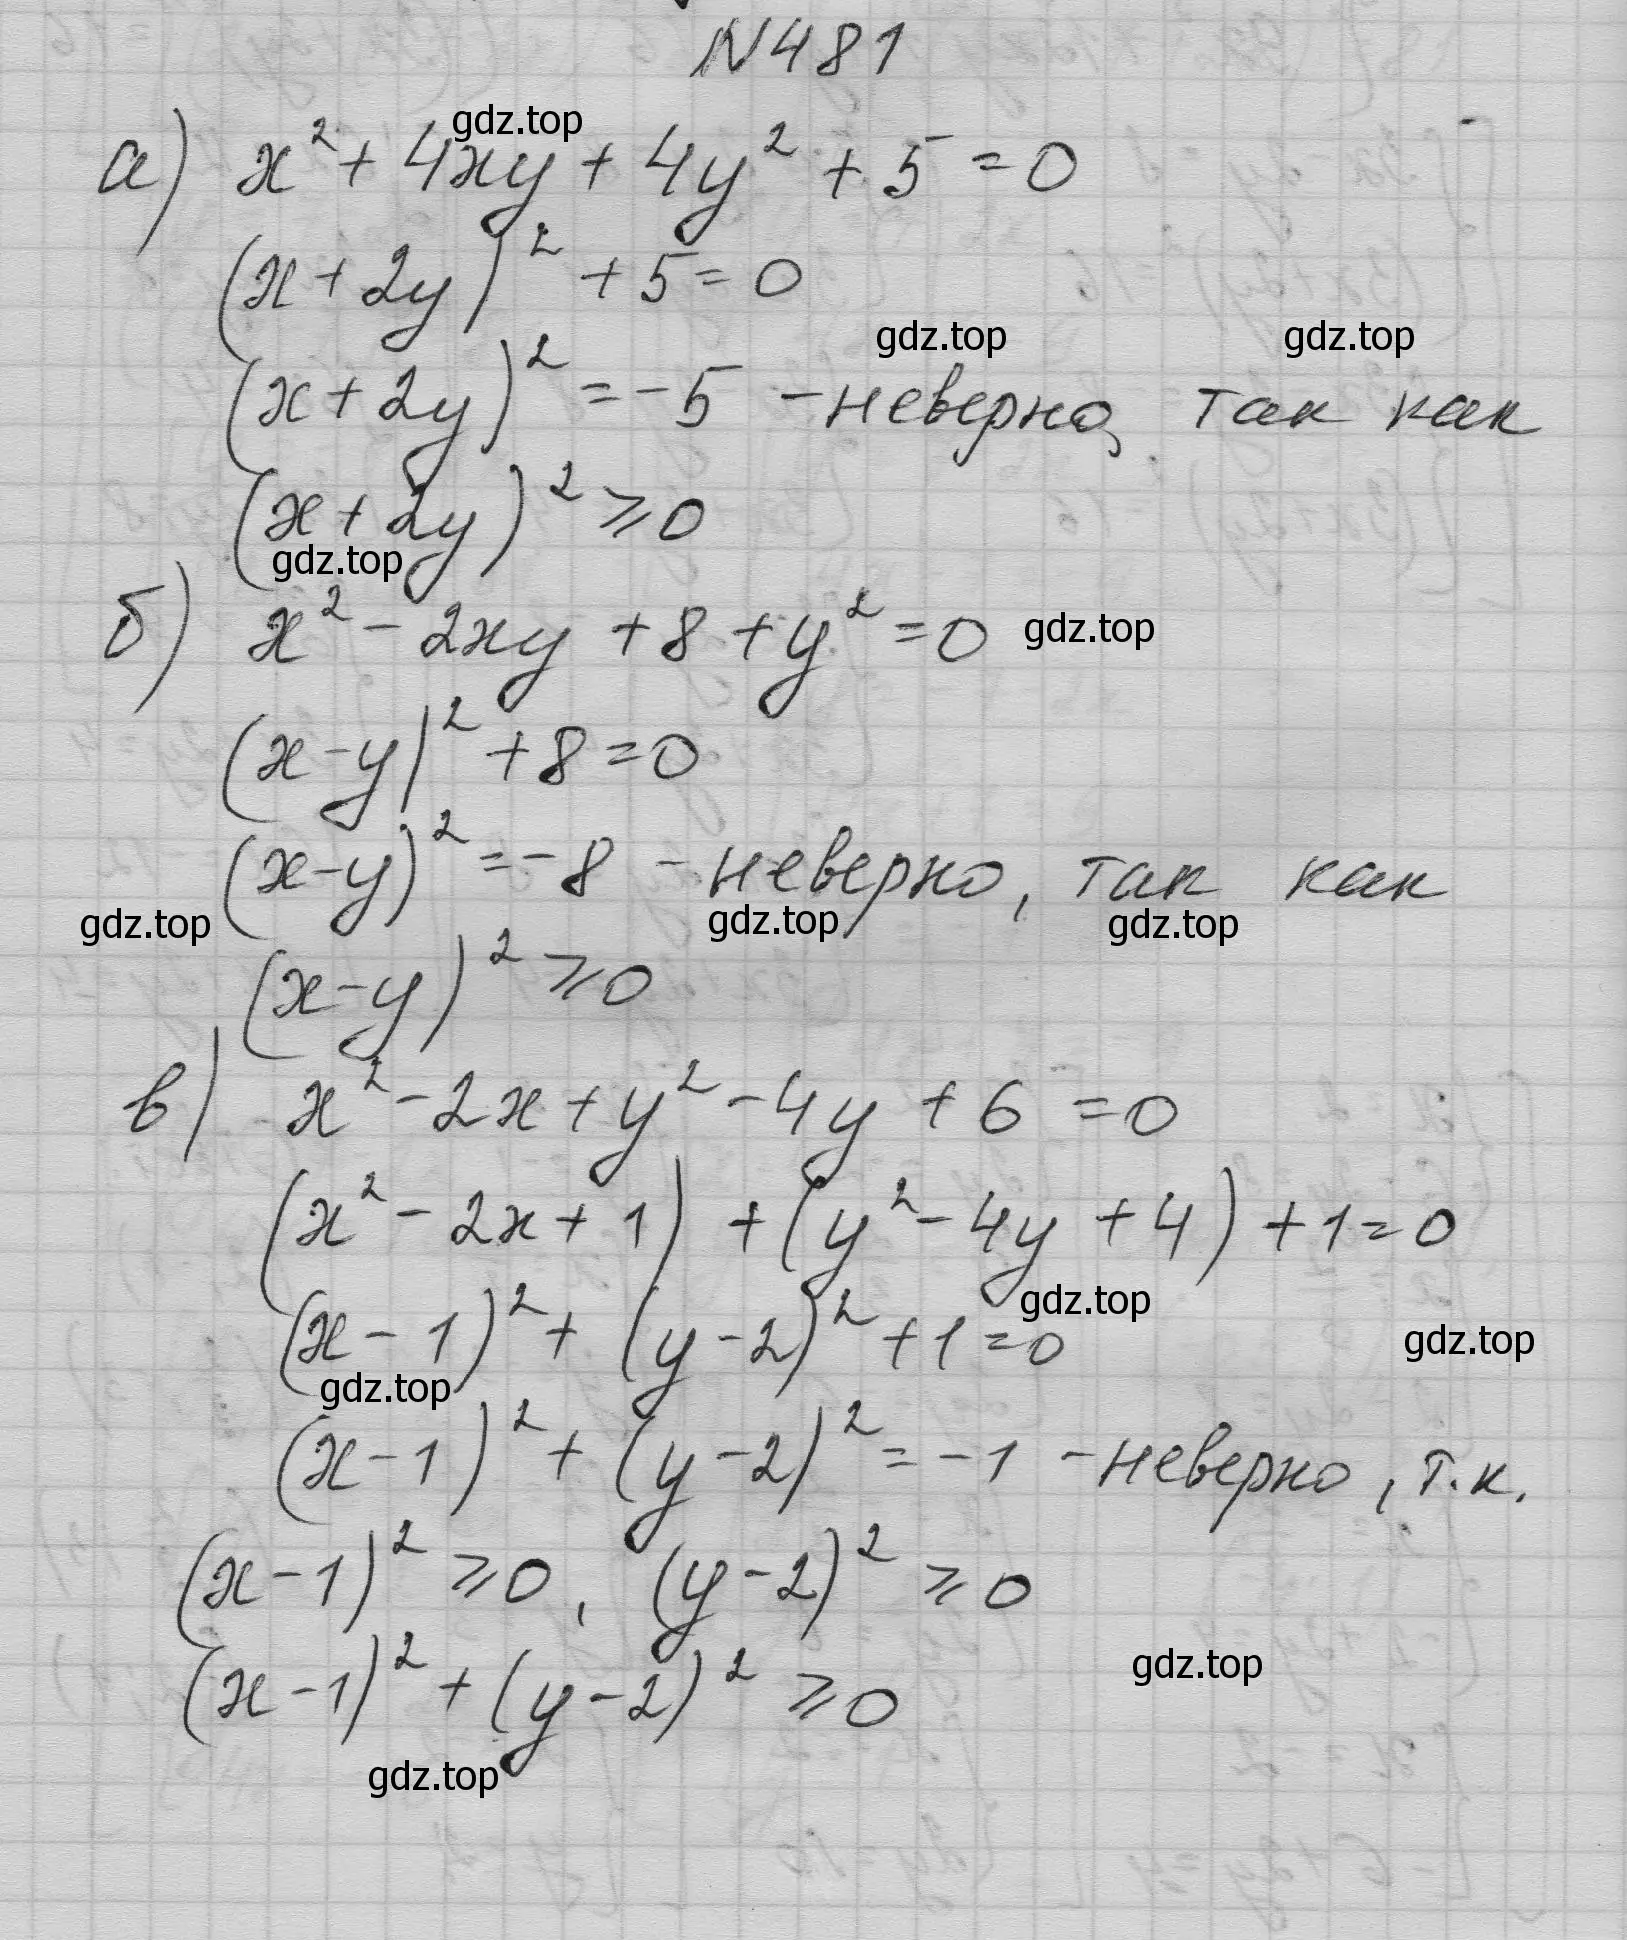 N481
gdz.top
а) x² + 4xy + 4y² + 5 = 0
(x + 2y)² + 5 = 0
gdz.top gdz.top
(x + 2y)² = -5 - неверно, так как
(x + 2y)² ⩾ 0
gdz.top
б) x² - 2xy + 8 + y² = 0 gdz.top
(x - y)² + 8 = 0
(x - y)² = -8 - неверно, так как
gdz.top gdz.top gdz.top
(x - y)² ⩾ 0
в) x² - 2x + y² - 4y + 6 = 0
(x² - 2x + 1) + (y² - 4y + 4) + 1 = 0
gdz.top
(x - 1)² + (y - 2)² + 1 = 0 gdz.top
gdz.top
(x - 1)² + (y - 2)² = -1 - неверно, т.к.
(x - 1)² ⩾ 0, (y - 2)² ⩾ 0
gdz.top
(x - 1)² + (y - 2)² ⩾ 0
gdz.top